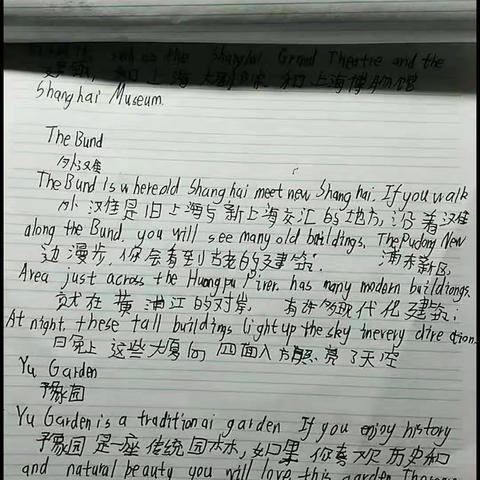 such as the Shanghai Grand Theatre and the
建筑，和上海大剧院和上海博物馆
Shanghai Museum.
The Bund
外汉难
The Bund is where old Shanghai meet new Shanghai. If you walk
外汉难是旧上海与新上海交汇的地方，沿着汉难
along the Bund, you will see many old buildings. The Pudong New
边漫步，你会看到古老的建筑； 浦东新区，
Area just across the Huangpu River. has many modern buildiongs.
就在黄浦江的对岸， 有许多现代化建筑；
At night, these tall buildings light up the sky inevery dire ction.
日晚上 这些大厦向四面八方照亮了天空
Yu Garden
予豫园
Yu Garden is a traditionai garden If you enjoy history
予豫园是一座传统园林，如果你喜欢历史和
and natural beauty you will love this garden